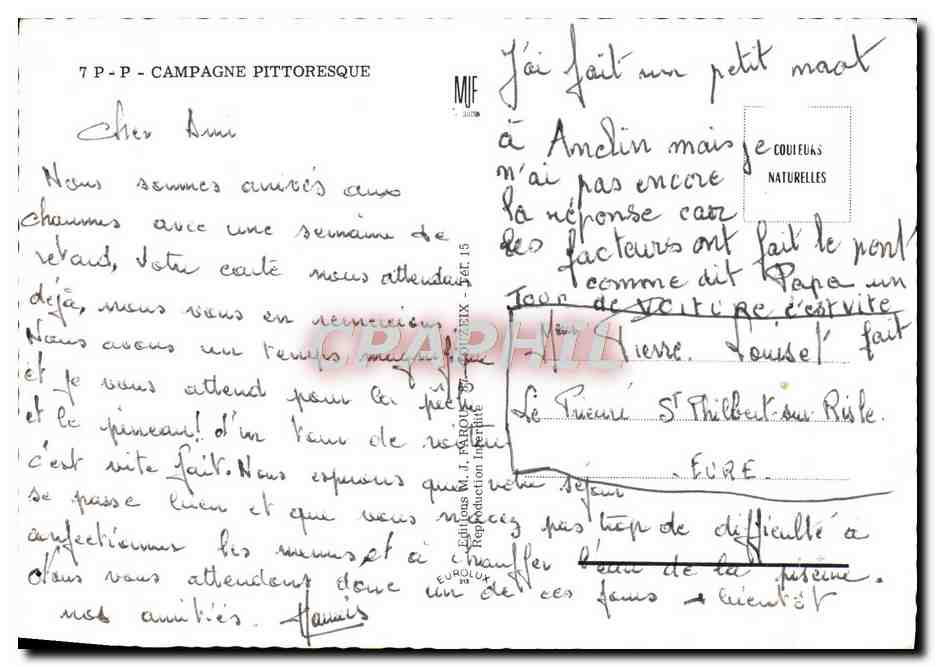 7 P - P - CAMPAGNE PITTORESQUE
MJF
Cher Ami
Nous sommes arrivés aux
chaumes avec une semaine de
retard, votre carte nous attendait
déjà, nous vous en remercions.
Nous avons un temps magnifique
et je vous attend pour la pêche
et le pineau! d'un tour de voiture
c'est vite fait. Nous espérons que votre séjour
se passe bien et que vous n'avez pas trop de difficulté à
confectionner les menus et à chauffer l'eau de la piscine.
Nous vous attendons donc un de ces jours à bientôt
nos amitiés.
J'ai fait un petit mot
à Anclin mais je
n'ai pas encore
la réponse car
les facteurs ont fait le pont
comme dit Papa un
Tour de VOITURE c'est vite
fait
Pierre Louiset
Le Prieuré St Philbert-sur-Risle.
- EURE -
COULEURS
NATURELLES
Editions M. J. FAROU
OUZEIX - Réf. 15
Reproduction Interdite
EUROLUX
CPAPHIL